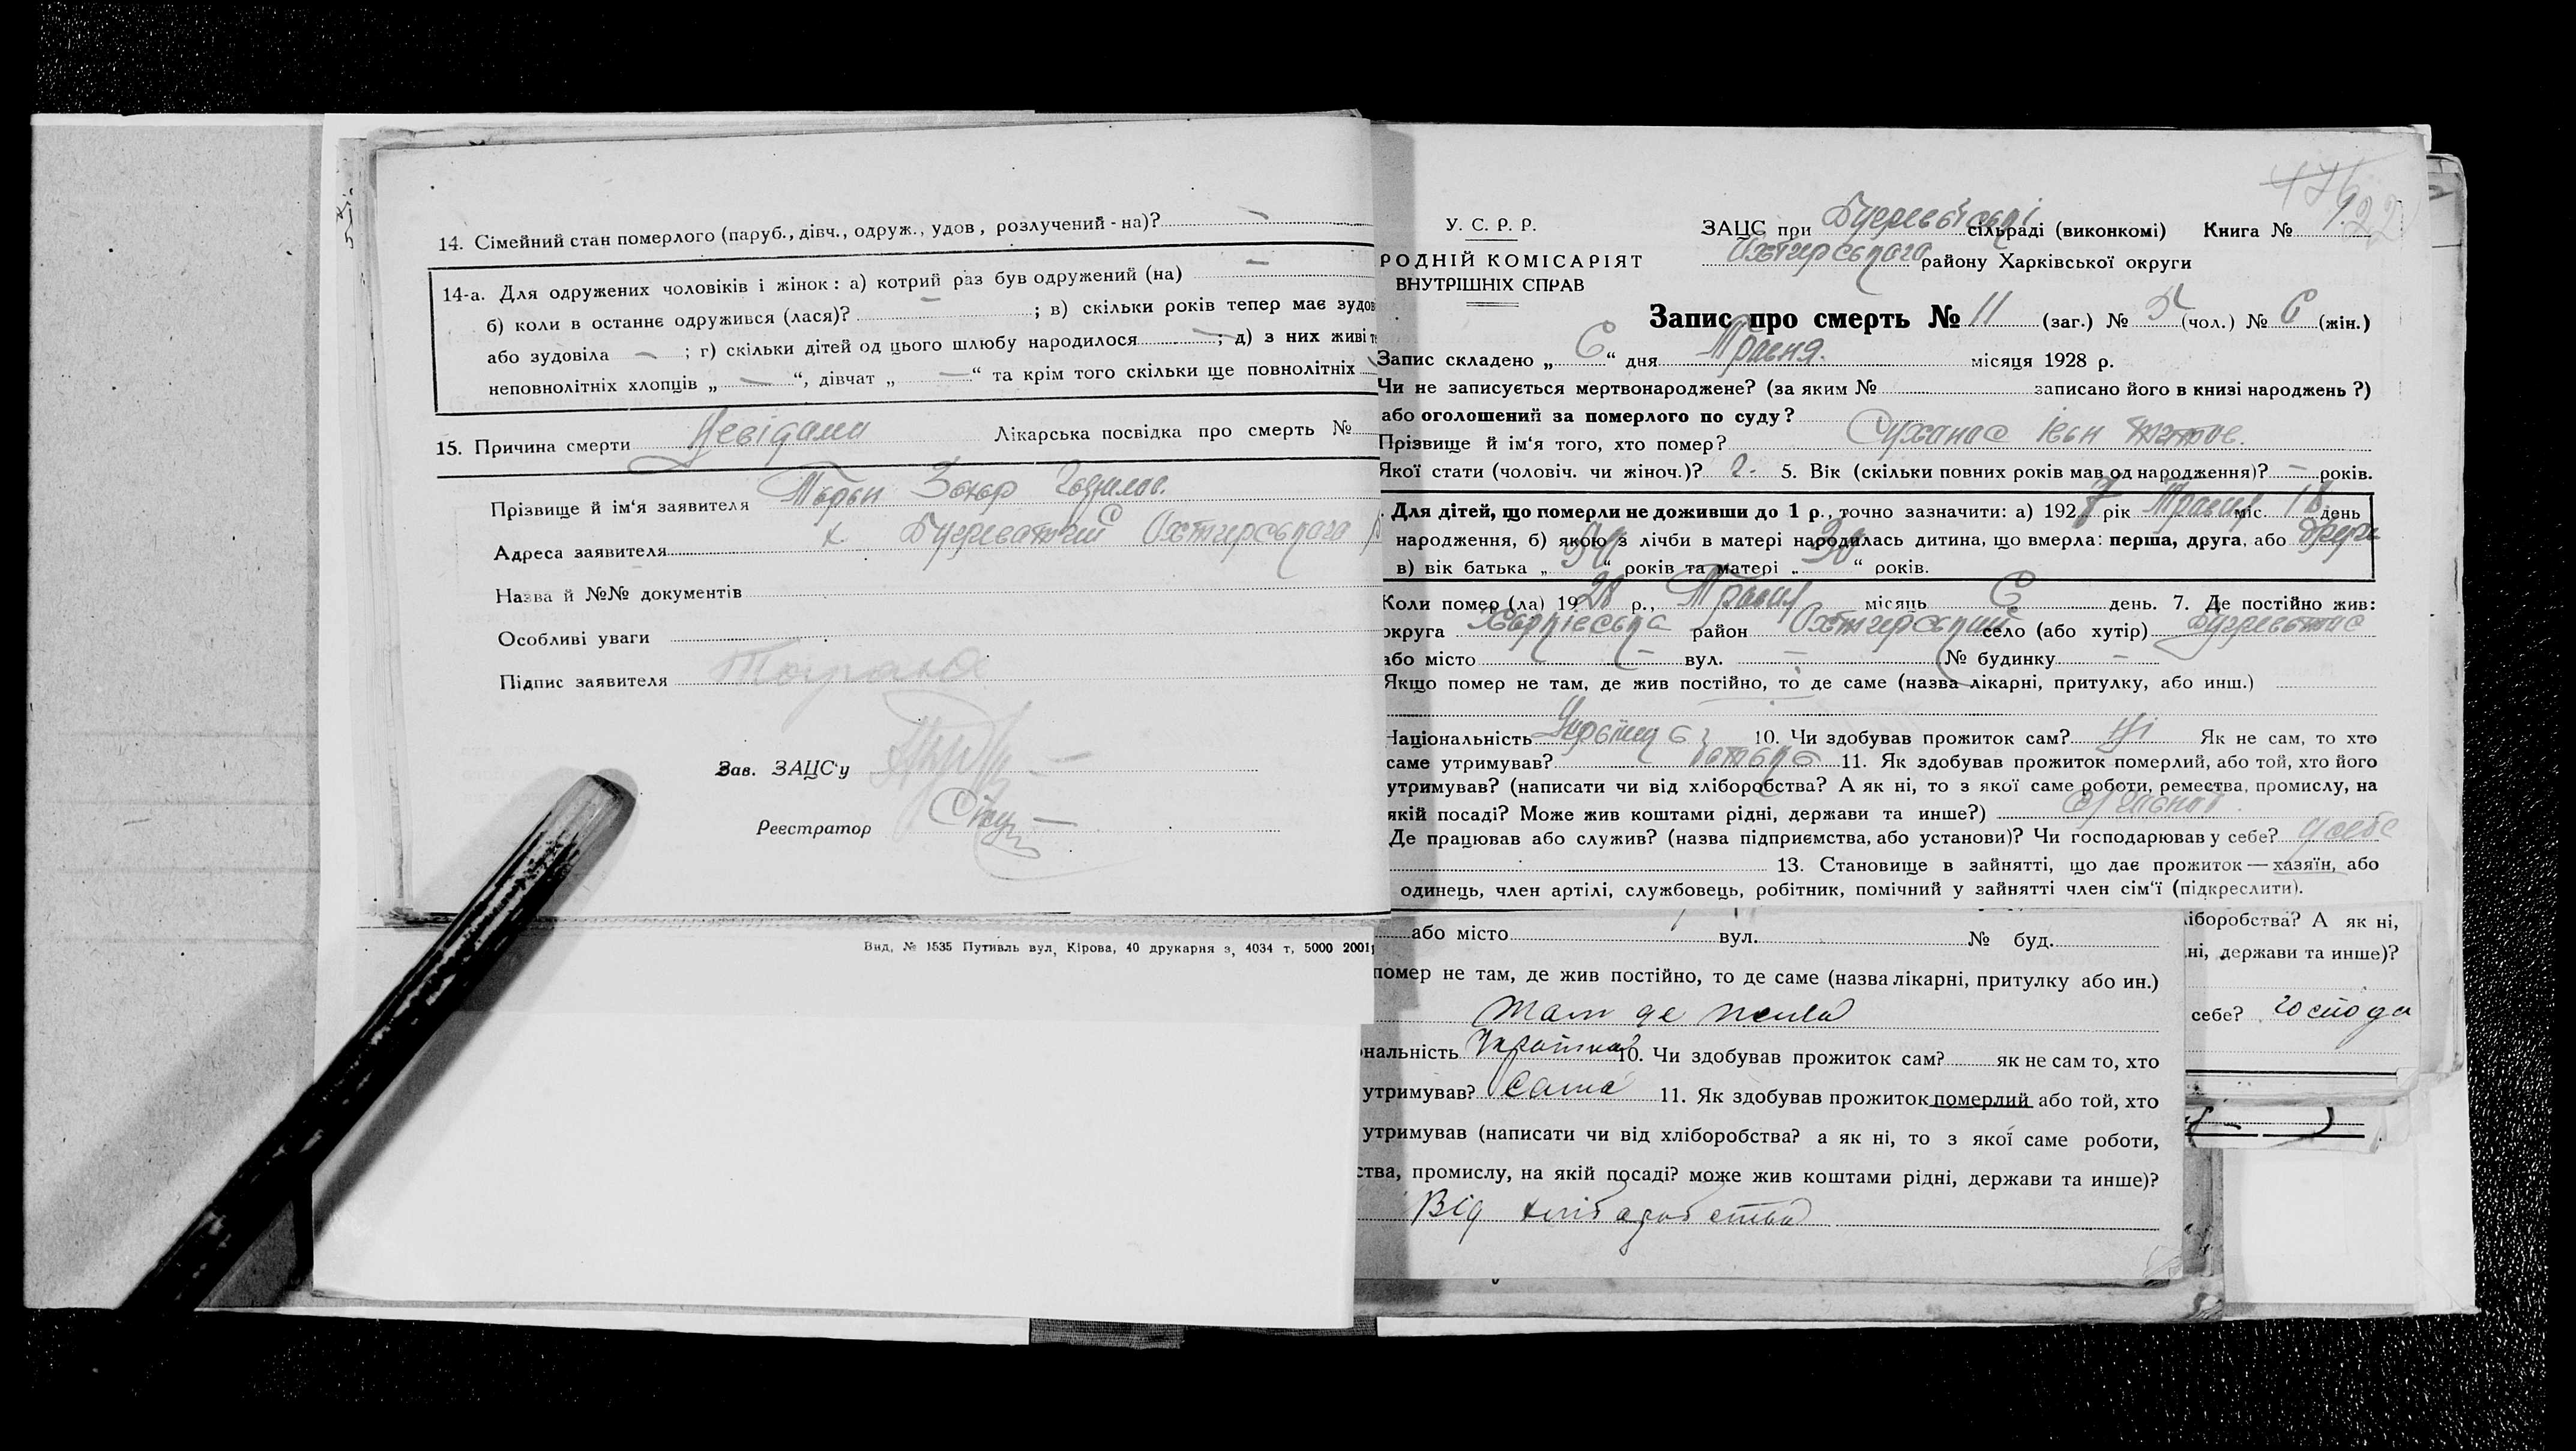 14. Сімейний стан померлого (паруб., дівч., одруж., удов, розлучений - на)? —
14-а. Для одружених чоловіків і жінок: а) котрий раз був одружений (на) —
б) коли в останнє одружився (лася)? — ; в) скільки років тепер має зудов
або зудовіла — ; г) скільки дітей од цього шлюбу народилося — ; д) з них живі
неповнолітніх хлопців „ — “, дівчат „ — “ та крім того скільки ще повнолітніх
15. Причина смерти Невідома Лікарська посвідка про смерть №
Прізвище й ім‘я заявителя Таран Захар
Адреса заявителя х. Бугреватий Охтирського
Назва й №№ документів
Особливі уваги
Підпис заявителя Таран
Зав. ЗАЦС‘у
Реєстратор
Вид. № 1535 Путивль вул. Кірова, 40 друкарня з, 4034 т, 5000 2001
122
У. С. Р. Р.
РОДНІЙ КОМІСАРІЯТ
ВНУТРІШНІХ СПРАВ
ЗАЦС при Бугреватські сільраді (виконкомі) Книга № 1
Охтирського району Харківської округи
Запис про смерть № 11 (заг.) № 5 (чол.) № 6 (жін.)
Запис складено „ 6 “ дня Травня місяця 1928 р.
Чи не записується мертвонароджене? (за яким № записано його в книзі народжень?)
або оголошений за померлого по суду?
Прізвище й ім‘я того, хто помер? Івн
Якої стати (чоловіч. чи жіноч.)? ч. 5. Вік (скільки повних років мав од народження)? — років.
Для дітей, що померли не доживши до 1 р., точно зазначити: а) 1927 рік Травня міс. 18 день
народження, б) якою з лічби в матері народилась дитина, що вмерла: перша, друга, або друга
в) вік батька „ 34 “ років та матері „ 30 “ років.
Коли помер (ла) 1928 р., Травня місяць 6 день. 7. Де постійно жив:
округа Харківська район Охтирський село (або хутір) Бугреватий
або місто — вул. — № будинку —
Якщо помер не там, де жив постійно, то де саме (назва лікарні, притулку, або инш.)
Національність Україн 10. Чи здобував прожиток сам? Ні Як не сам, то хто
саме утримував? батько 11. Як здобував прожиток померлий, або той, хто його
утримував? (написати чи від хліборобства? А як ні, то з якої саме роботи, ремества, промислу, на
якій посаді? Може жив коштами рідні, держави та инше?)
Де працював або служив? (назва підприємства, або установи)? Чи господарював у себе? у себе
13. Становище в зайнятті, що дає прожиток — хазяїн, або
одинець, член артілі, службовець, робітник, помічний у зайнятті член сім‘ї (підкреслити).
або місто вул. № буд.
помер не там, де жив постійно, то де саме (назва лікарні, притулку або ин.)
там де жила
нальність Українка 10. Чи здобував прожиток сам? як не сам то, хто
утримував? сама 11. Як здобував прожиток померлий або той, хто
утримував (написати чи від хліборобства? а як ні, то з якої саме роботи,
ства, промислу, на якій посаді? може жив коштами рідні, держави та инше)?
Від хліборобства
іборобства? А як ні,
ні, держави та инше)?
себе? господа